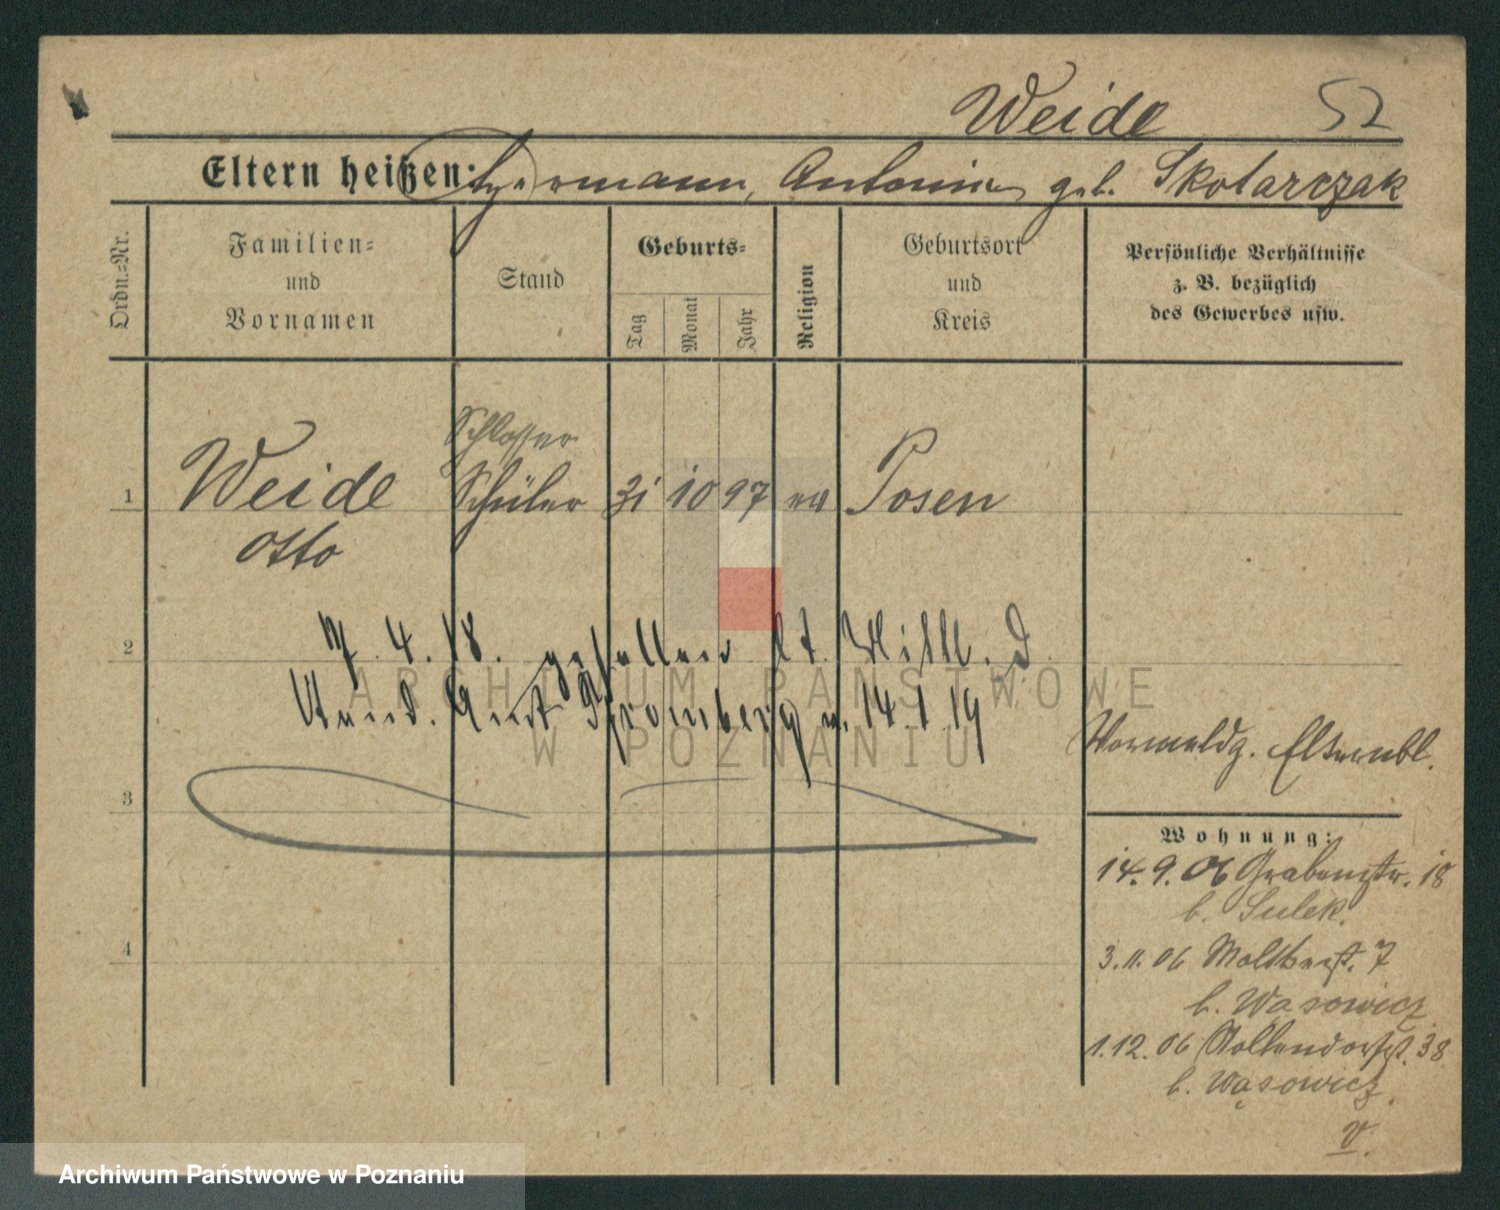 Weide 52
Eltern heißen: Hermann, Antonina geb. Skotarczak
Ordn.=Nr.
Familien=
und
Vornamen
Stand
Geburts=
Tag
Monat
Jahr
Religion
Geburtsort
und
Kreis
Persönliche Verhältnisse
z. B. bezüglich
des Gewerbes usw.
Schlosser
1 Weide Schüler 31 10 97 ev Posen
Otto
2 7. 4. 18. gefallen lt. Mittl. d.
Stand. Amt Bromberg v. 14.1.19
ARCHIWUM PAŃSTWOWE
W POZNANIU
Vormeldg. Elternbl.
3
Wohnung:
14.9.06 Grabenstr. 18
b. Sulek.
4
3.11.06 Moltkestr. 7
b. Wąsowicz
1.12.06 Nollendorfst. 38
b. Wąsowicz.
v.
Archiwum Państwowe w Poznaniu